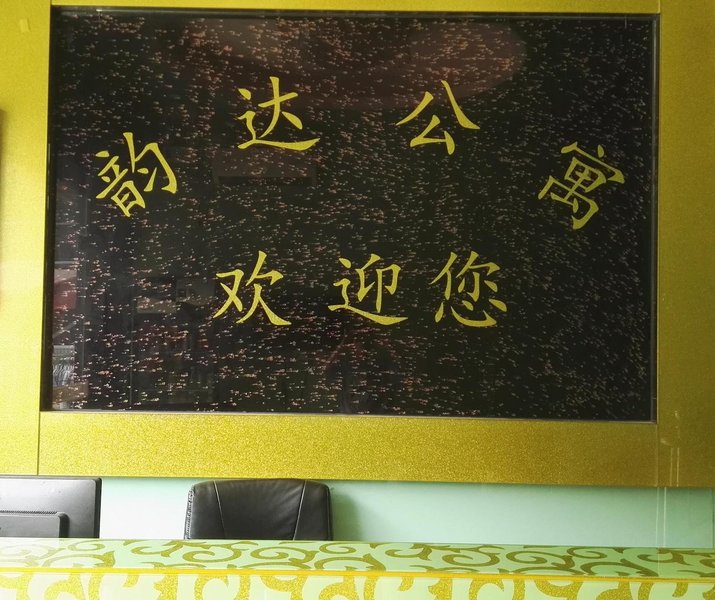 韵达公寓
欢迎您